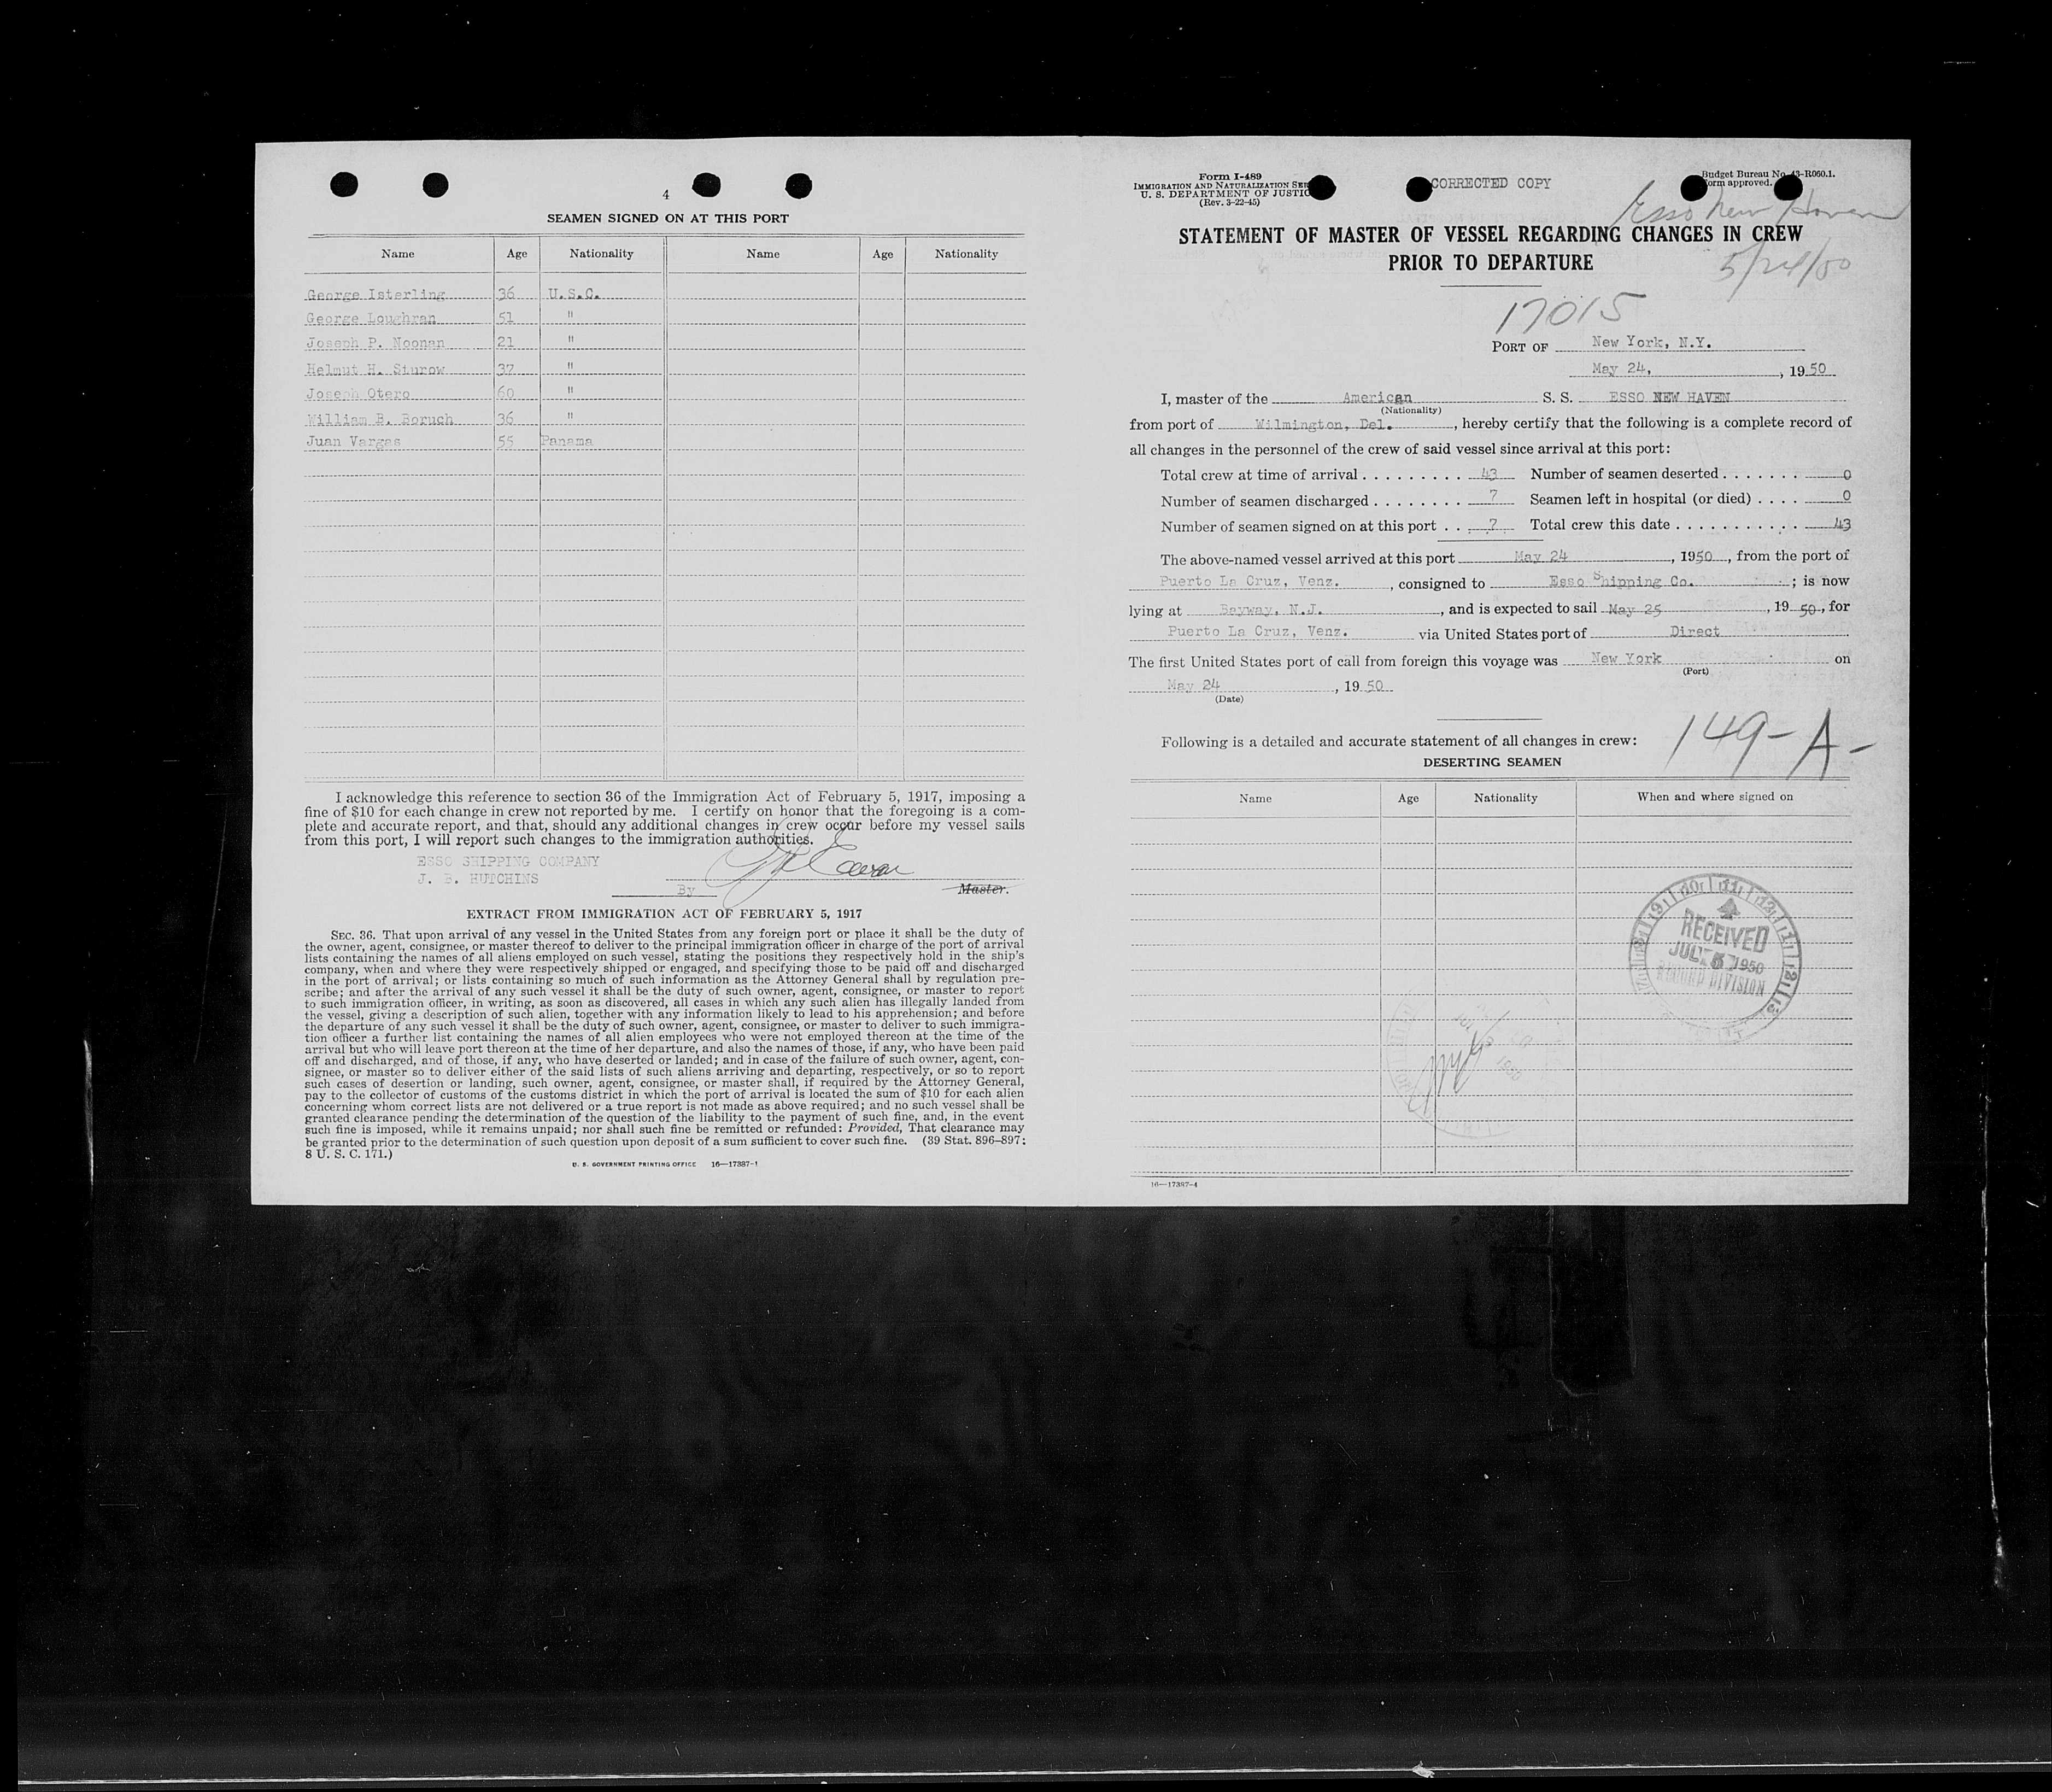 4
SEAMEN SIGNED ON AT THIS PORT
Name Age Nationality Name Age Nationality
George Isterling 36 U.S.C.
George Loughran 51 "
Joseph P. Noonan 21 "
Helmut H. Sturow 37 "
Joseph Otero 60 "
William B. Boruch 36 "
Juan Vargas 55 Panama
I acknowledge this reference to section 36 of the Immigration Act of February 5, 1917, imposing a
fine of $10 for each change in crew not reported by me. I certify on honor that the foregoing is a com-
plete and accurate report, and that, should any additional changes in crew occur before my vessel sails
from this port, I will report such changes to the immigration authorities.
ESSO SHIPPING COMPANY
J. B. HUTCHINS
By
Master.
EXTRACT FROM IMMIGRATION ACT OF FEBRUARY 5, 1917
SEC. 36. That upon arrival of any vessel in the United States from any foreign port or place it shall be the duty of
the owner, agent, consignee, or master thereof to deliver to the principal immigration officer in charge of the port of arrival
lists containing the names of all aliens employed on such vessel, stating the positions they respectively hold in the ship's
company, when and where they were respectively shipped or engaged, and specifying those to be paid off and discharged
in the port of arrival; or lists containing so much of such information as the Attorney General shall by regulation pre-
scribe; and after the arrival of any such vessel it shall be the duty of such owner, agent, consignee, or master to report
to such immigration officer, in writing, as soon as discovered, all cases in which any such alien has illegally landed from
the vessel, giving a description of such alien, together with any information likely to lead to his apprehension; and before
the departure of any such vessel it shall be the duty of such owner, agent, consignee, or master to deliver to such immigra-
tion officer a further list containing the names of all alien employees who were not employed thereon at the time of the
arrival but who will leave port thereon at the time of her departure, and also the names of those, if any, who have been paid
off and discharged, and of those, if any, who have deserted or landed; and in case of the failure of such owner, agent, con-
signee, or master so to deliver either of the said lists of such aliens arriving and departing, respectively, or so to report
such cases of desertion or landing, such owner, agent, consignee, or master shall, if required by the Attorney General,
pay to the collector of customs of the customs district in which the port of arrival is located the sum of $10 for each alien
concerning whom correct lists are not delivered or a true report is not made as above required; and no such vessel shall be
granted clearance pending the determination of the question of the liability to the payment of such fine, and, in the event
such fine is imposed, while it remains unpaid; nor shall such fine be remitted or refunded: Provided, That clearance may
be granted prior to the determination of such question upon deposit of a sum sufficient to cover such fine. (39 Stat. 896-897;
8 U. S. C. 171.)
U. S. GOVERNMENT PRINTING OFFICE 16—17387-1
Form I-489
IMMIGRATION AND NATURALIZATION SER
U. S. DEPARTMENT OF JUSTIC
(Rev. 3-22-45)
CORRECTED COPY
Budget Bureau No. 43-R060.1.
Form approved.
Esso New Haven
5/24/50
STATEMENT OF MASTER OF VESSEL REGARDING CHANGES IN CREW
PRIOR TO DEPARTURE
17015
PORT OF New York, N.Y.
May 24, , 19 50
I, master of the American S. S. ESSO NEW HAVEN
(Nationality)
from port of Wilmington, Del. , hereby certify that the following is a complete record of
all changes in the personnel of the crew of said vessel since arrival at this port:
Total crew at time of arrival . . . . . . . . . 43 Number of seamen deserted . . . . . . . 0
Number of seamen discharged . . . . . . . . 7 Seamen left in hospital (or died) . . . . 0
Number of seamen signed on at this port . . 7 Total crew this date . . . . . . . . . . . 43
The above-named vessel arrived at this port May 24 , 1950 , from the port of
Puerto La Cruz, Venz. , consigned to Esso Shipping Co. ; is now
lying at Bayway, N.J. , and is expected to sail May 25 , 19 50 , for
Puerto La Cruz, Venz. via United States port of Direct
The first United States port of call from foreign this voyage was New York on
(Port)
May 24 , 19 50
(Date)
Following is a detailed and accurate statement of all changes in crew:
149-A-
DESERTING SEAMEN
Name Age Nationality When and where signed on
RECEIVED
JUL 5 1950
RECORD DIVISION
16—17387-4